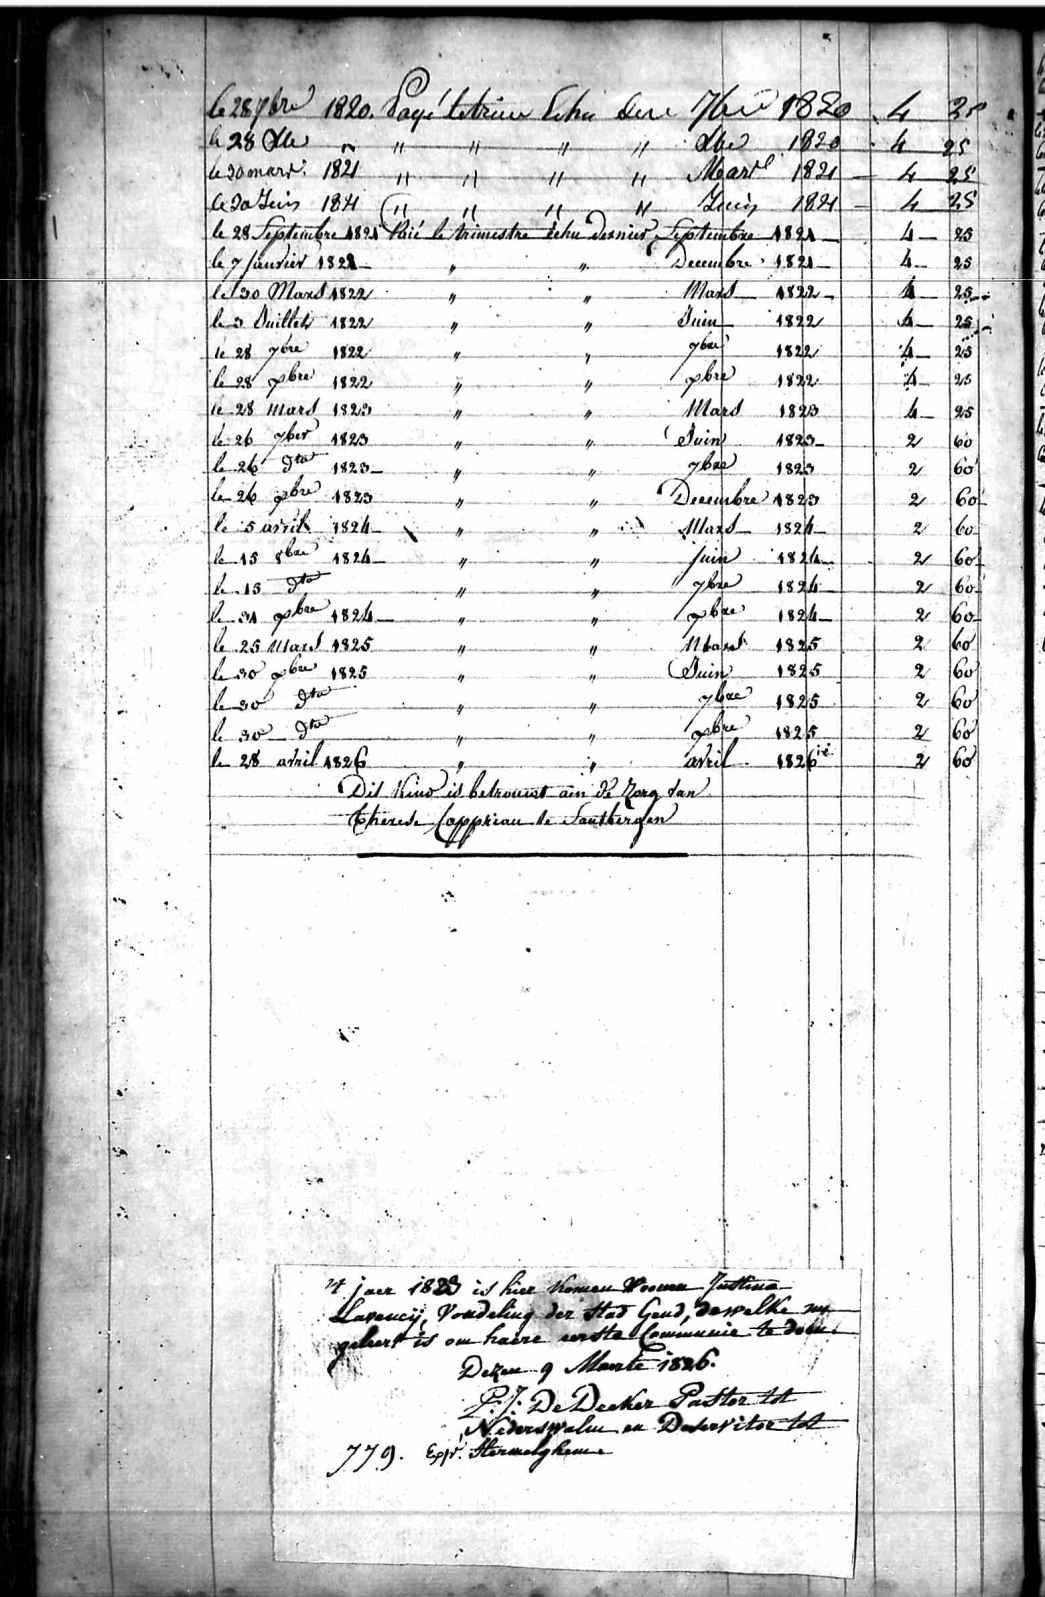 le 28 7bre 1820. Payé le trim Echu dern 7bre 1820 4 25
le 28 Xbre " " " " " Xbre 1820 4 25
le 30 mars 1821 " " " " Mars 1821 4 25
le 30 Juin 1821 " " " " Juin 1821 4 25
le 28 Septembre 1821 Paié le trimestre echu dernier Septembre 1821 4 25
le 7 Janvier 1822 " " Decembre 1821 4 25
le 30 Mars 1822 " " Mars 1822 4 25
le 3 Juillet 1822 " " Juin 1822 4 25
le 28 7bre 1822 " " 7bre 1822 4 25
le 28 Xbre 1822 " " Xbre 1822 4 25
le 28 mars 1823 " " Mars 1823 4 25
le 26 7bre 1823 " " Juin 1823 2 60
le 26 dto 1823 " " 7bre 1823 2 60
le 26 Xbre 1823 " " Decembre 1823 2 60
le 5 avril 1824 " " Mars 1824 2 60
le 15 8bre 1824 " " juin 1824 2 60
le 15 dto " " 7bre 1824 2 60
le 31 Xbre 1824 " " Xbre 1824 2 60
le 25 Mars 1825 " " Mars 1825 2 60
le 30 Xbre 1825 " " Juin 1825 2 60
le 30 dto " " 7bre 1825 2 60
le 30 dto " " Xbre 1825 2 60
le 28 avril 1826 " " avril 1826 2 60
Dit Kind is betrouwt aen de Zorg van
Therese Coppieau te Santbergen
jaer 1823 is hier komen woonen Justina
Lavencij, Vondeling der Stad Gend, dewelke nu
geleert is om haere eerste Communie te doen.
Dezen 9 Maerte 1826.
P: J: De Decker Pastor tot
Nederswalm en Deservitor tot
779. Exp. Hermelghem